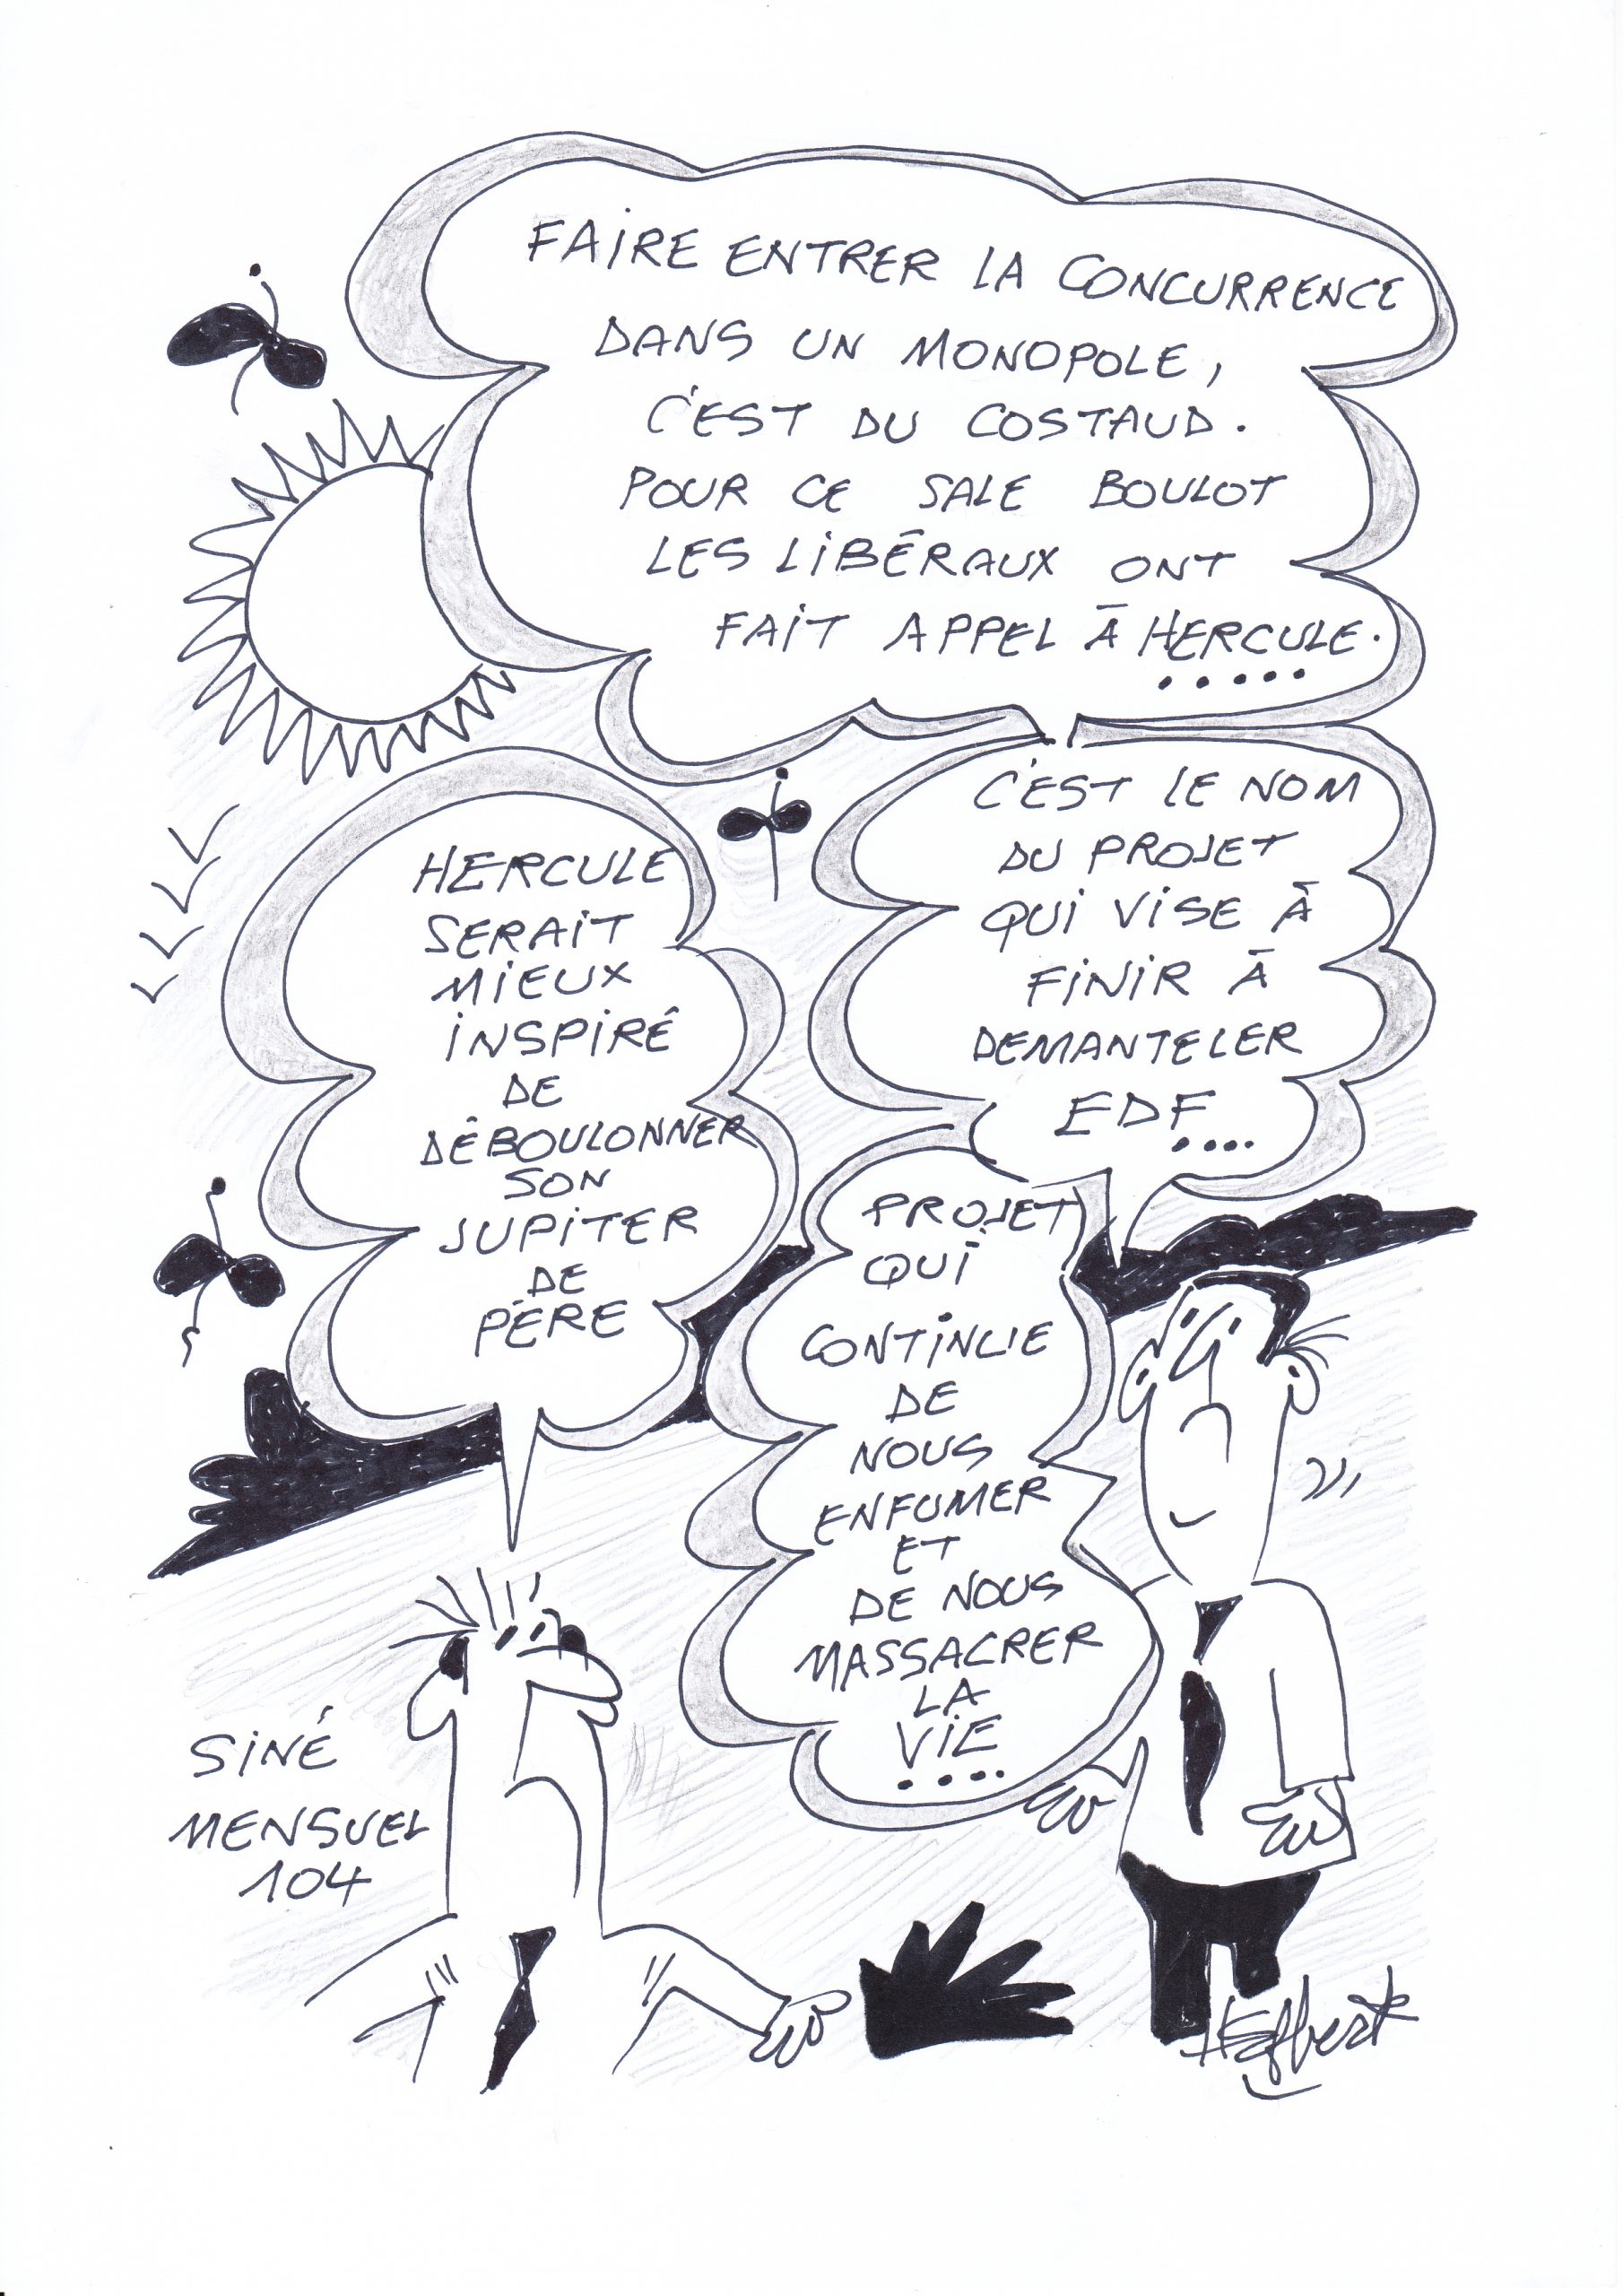 FAIRE ENTRER LA CONCURRENCE
DANS UN MONOPOLE,
C'EST DU COSTAUD.
POUR CE SALE BOULOT
LES LIBÉRAUX ONT
FAIT APPEL À HERCULE.
.....
C'EST LE NOM
DU PROJET
QUI VISE À
FINIR À
DEMANTELER
EDF....
PROJET
QUI
CONTINUE
DE
NOUS
ENFUMER
ET
DE NOUS
MASSACRER
LA
VIE
....
HERCULE
SERAIT
MIEUX
INSPIRÉ
DE
DÉBOULONNER
SON
JUPITER
DE
PÈRE
SINÉ
MENSUEL
104